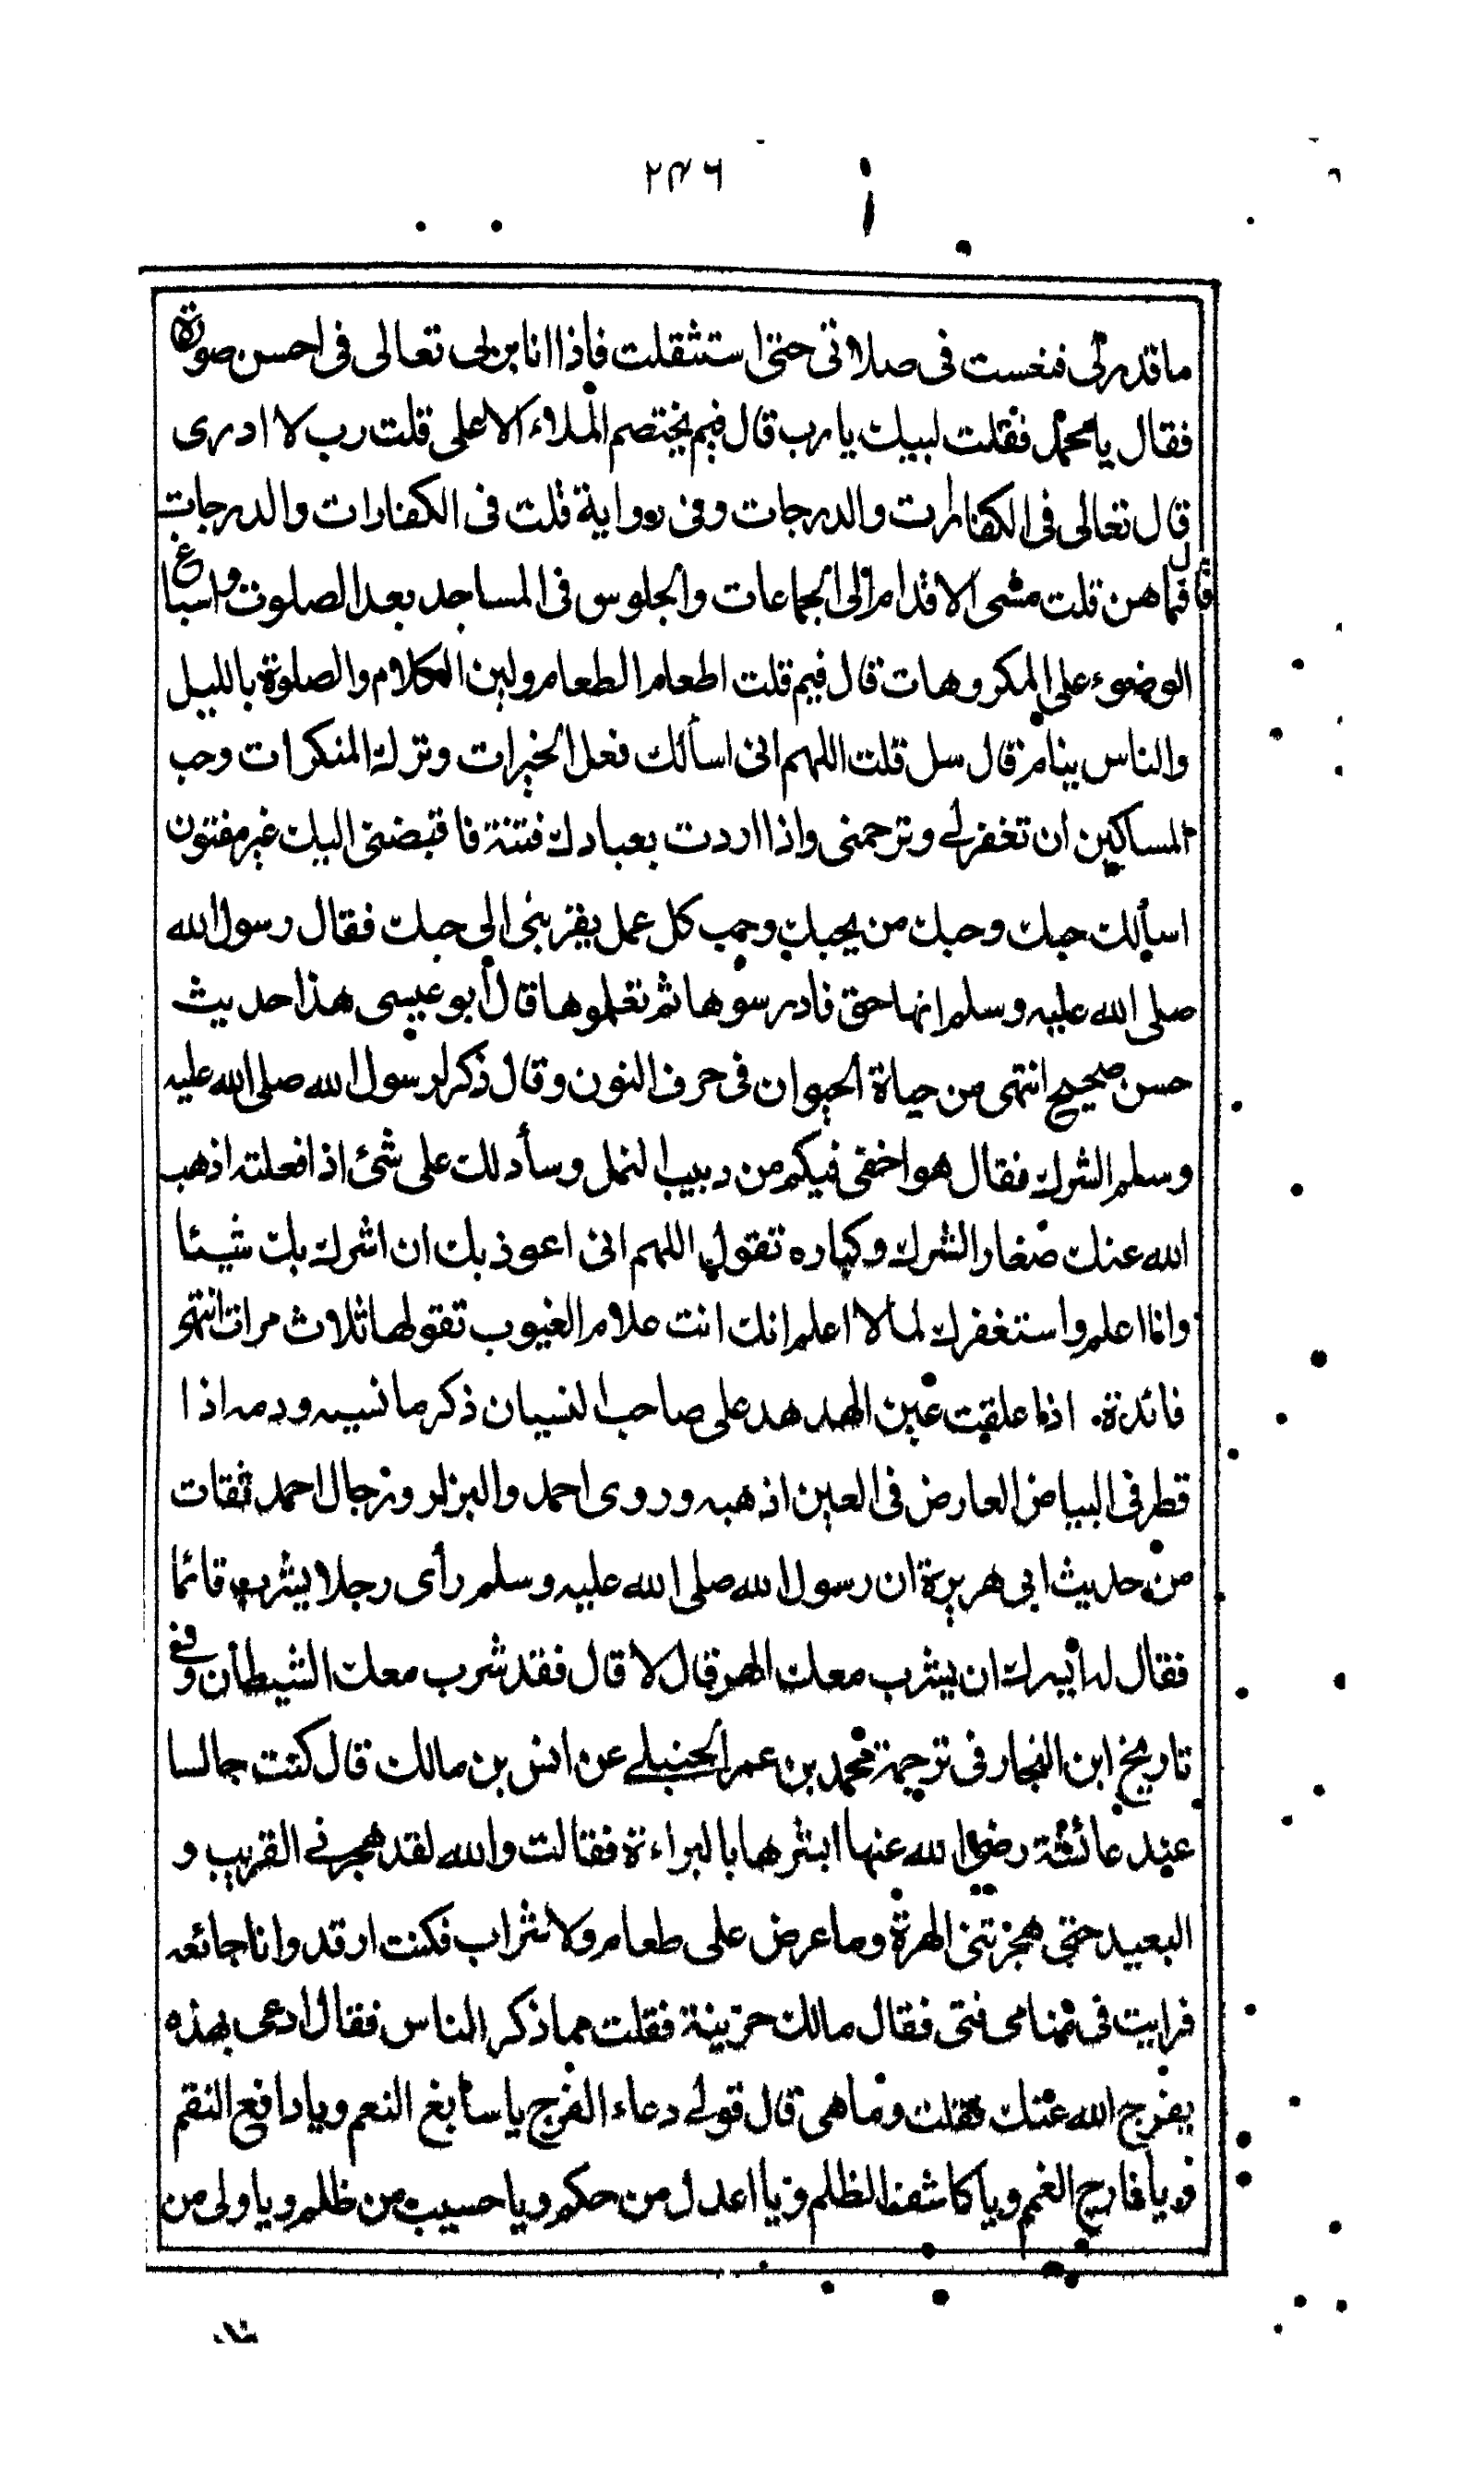 ٢٣٦
ماقدر لى فنعست فى صلاتى حتى استثقلت فاذا انا بربى تعالى فى احسن صورة
فقال يا محمد فقلت لبيك يا رب قال فيم يختصم الملاء الاعلى قلت رب لا ادرى
قال تعالى فى الكفارات والدرجات وفى رواية قلت فى الكفارات والدرجات
قال فما هن قلت مشى الاقدام الى الجماعات والجلوس فى المساجد بعد الصلوت واسباغ
الوضوء على المكروهات قال فيم قلت اطعام الطعام ولين الكلام والصلوة بالليل
والناس ينام قال سل قلت اللهم انى اسألك فعل الخيرات وترك المنكرات وحب
المساكين ان تغفر لے وترحمنى واذا اردت بعبادك فتنة فاقبضنى اليك غير مفتون
اسألك حبك وحبك من يحبك وحب كل عمل يقربنى الى حبك فقال رسول الله
صلى الله عليه وسلم انها حق فادرسوها ثم تعلموها قال أبو عيسى هذا حديث
حسن صحيح انتهى من حياة الحيوان فى حرف النون وقال ذكر لرسول الله صلى الله عليه
وسلم الشرك فقال هو اخفى فيكم من دبيب النمل وسأدلك على شئ اذا فعلته اذهب
الله عنك صغار الشرك وكباره تقول اللهم انى اعوذ بك ان اشرك بك شيئا
وانا اعلم واستغفرك لما لا اعلم انك انت علام الغيوب تقولها ثلاث مرات انتهى
فائدة. اذا علقت عين الهدهد على صاحب النسيان ذكر ما نسيه ودمه اذا
قطر فى البياض العارض فى العين اذهبه وروى احمد والبزار ورجال احمد ثقات
من حديث ابى هريرة ان رسول الله صلى الله عليه وسلم رأى رجلا يشرب قائما
فقال له أيسرك ان يشرب معك الهر قال لا قال فقد شرب معك الشيطان وفى
تاريخ ابن النجار فى ترجمة محمد بن عمر الحنبلے عن انس بن مالك قال كنت جالسا
عند عائشة رضى الله عنها ابشرها بالبراءة فقالت والله لقد هجرنے القريب و
البعيد حتى هجرتنى الهرة وما عرض على طعام ولا شراب فكنت ارقد وانا جائعه
فرايت فى منامى فتى فقال مالك حزينة فقلت مما ذكر الناس فقال ادعى بهذه
يفرج الله عنك فقلت وما هى قال قولے دعاء الفرج يا سابغ النعم ويا دافع النقم
ويا فارج الغم ويا كاشف الظلم ويا اعدل من حكم ويا حسيب من ظلم ويا ولى من